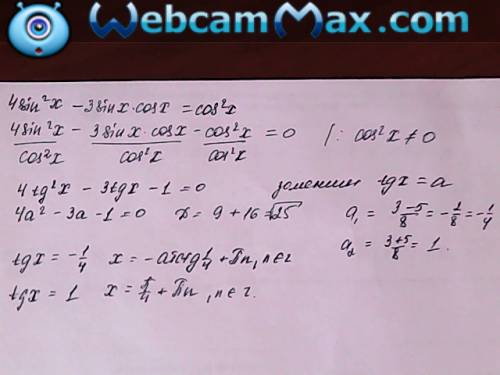 WebcamMax.com
4sin²x - 3sinx·cosx = cos²x
4sin²x/cos²x - 3sinx·cosx/cos²x - cos²x/cos²x = 0 /: cos²x ≠ 0
4tg²x - 3tgx - 1 = 0 заменим tgx = a
4a² - 3a - 1 = 0 D = 9 + 16 = √25 a₁ = 3-5/8 = -1/8 = -1/4
a₂ = 3+5/8 = 1.
tgx = -1/4 x = -arctg 1/4 + Пn, n∈z
tgx = 1 x = П/4 + Пn, n∈z.